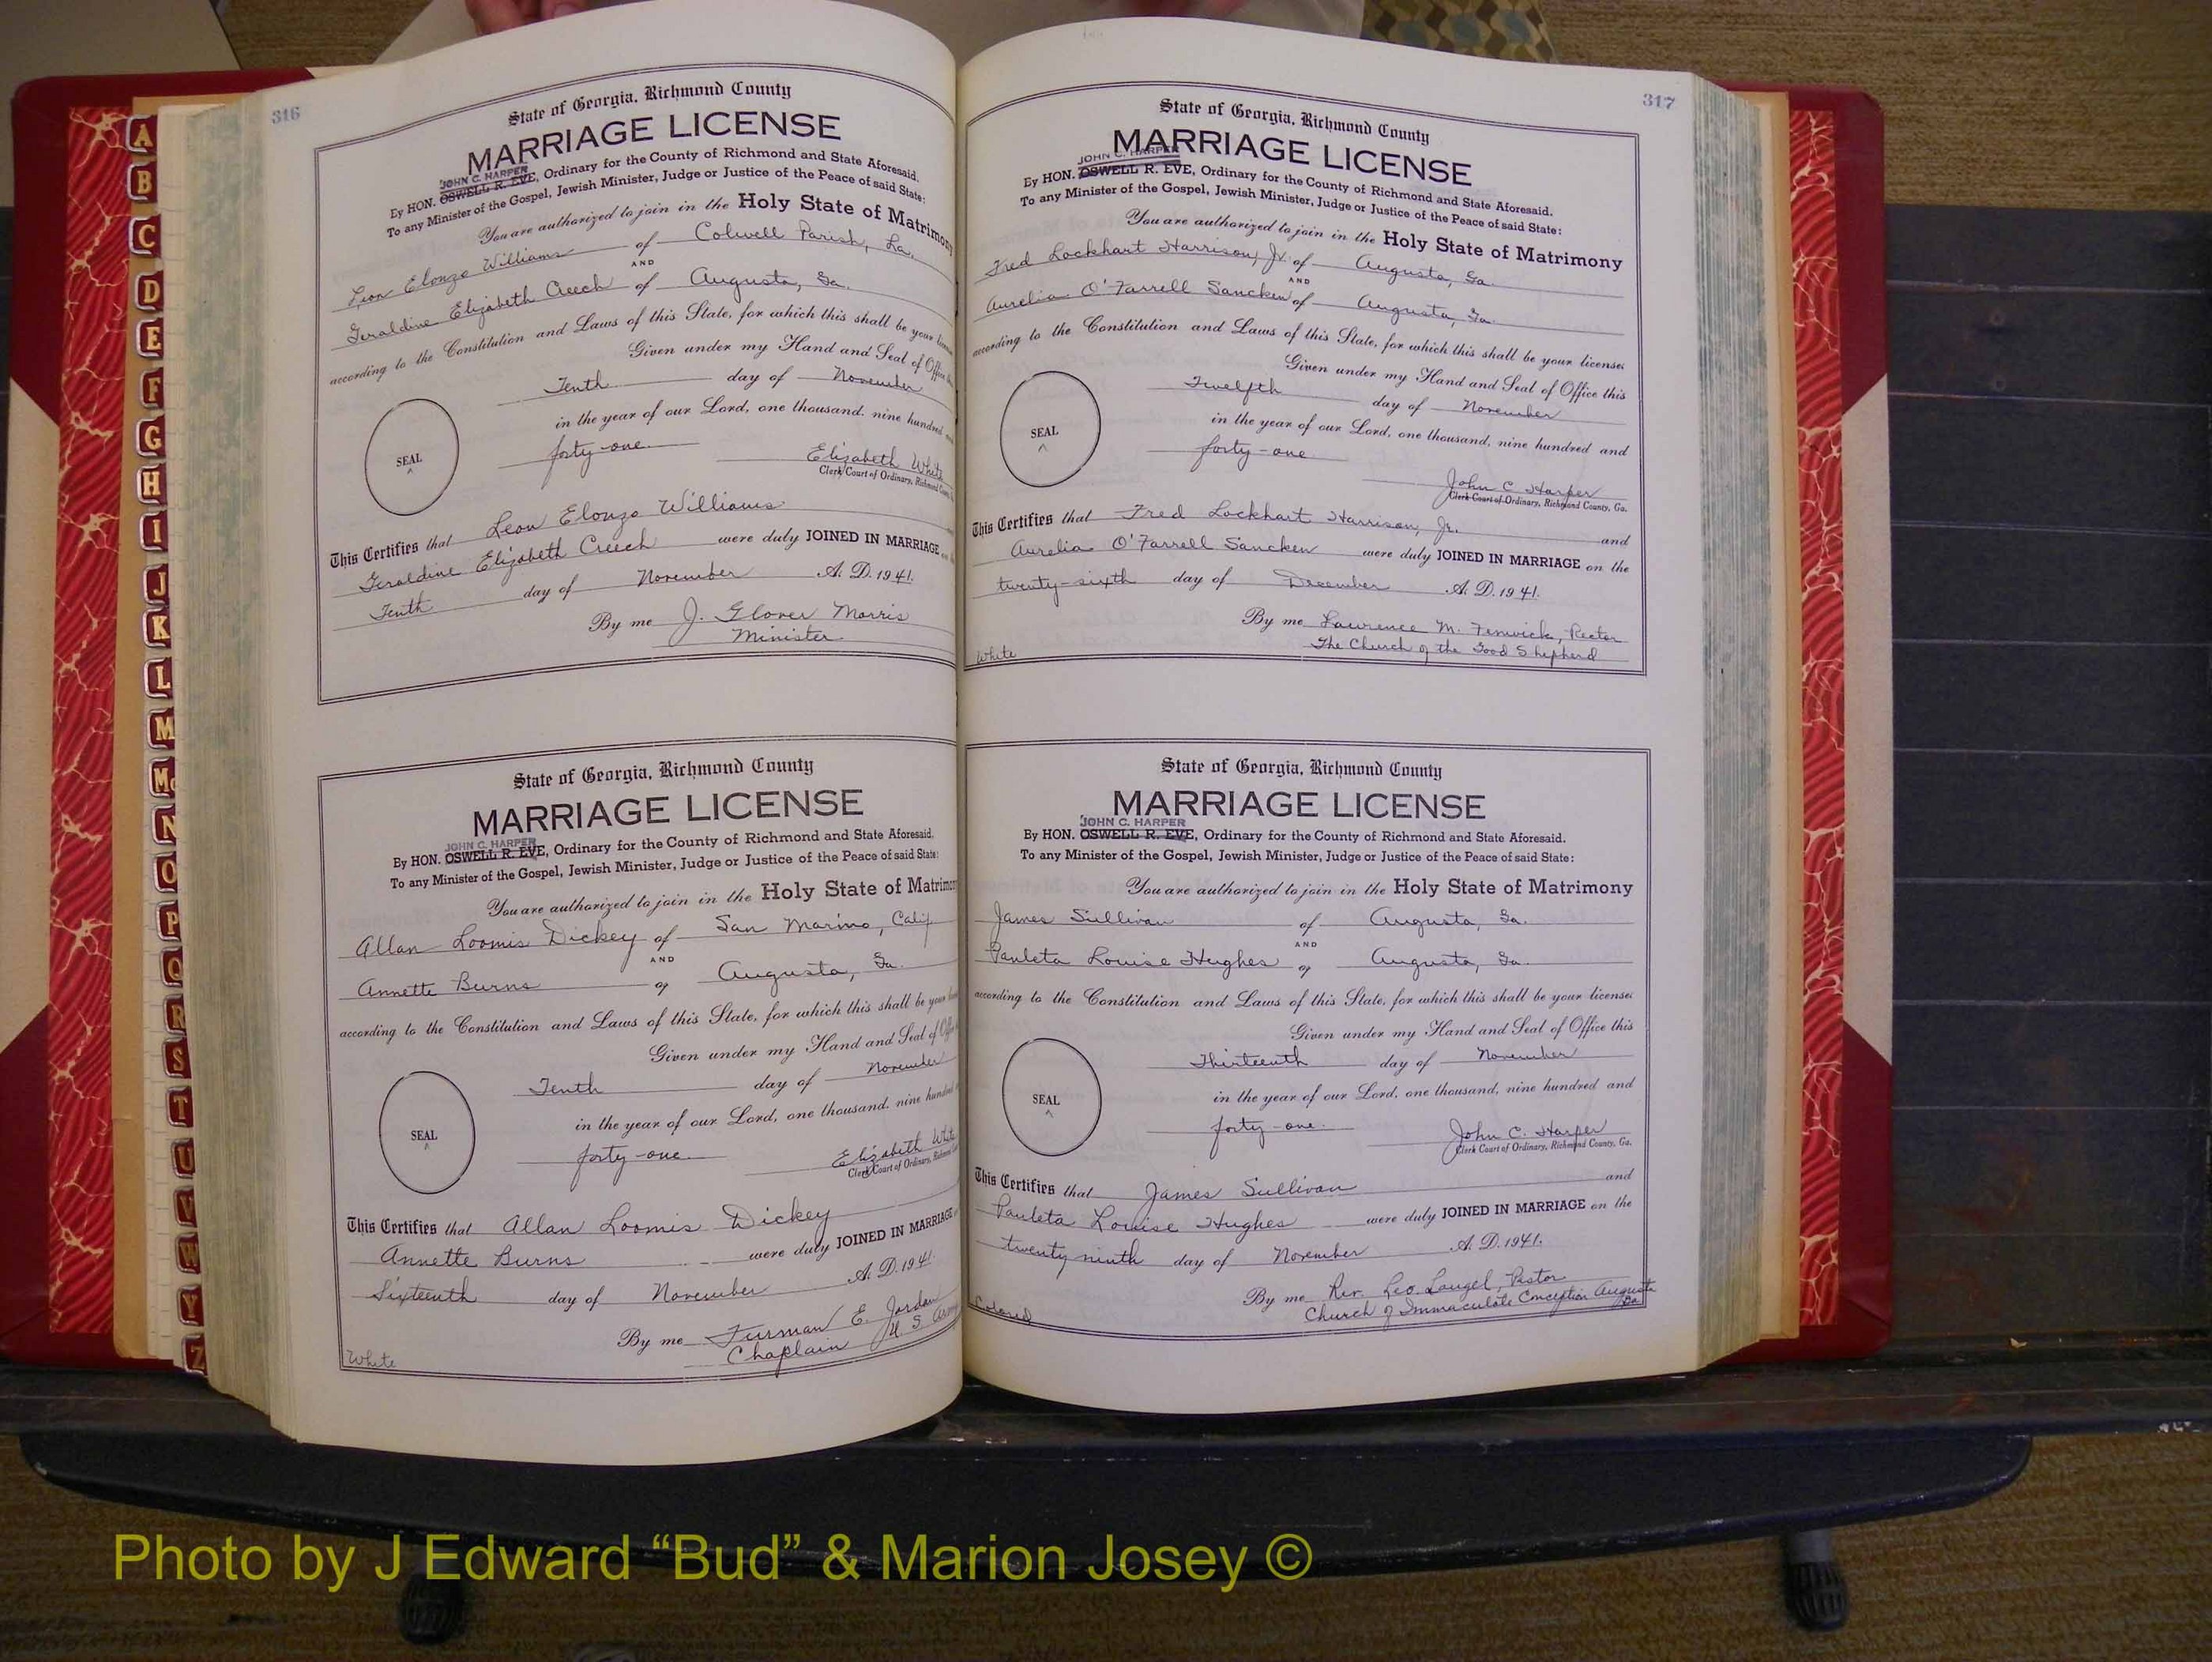 316
State of Georgia, Richmond County
MARRIAGE LICENSE
JOHN C. HARPER
By HON. OSWELL R. EVE, Ordinary for the County of Richmond and State Aforesaid.
To any Minister of the Gospel, Jewish Minister, Judge or Justice of the Peace of said State:
You are authorized to join in the Holy State of Matrimony
Leon Elonzo Williams of Colwell Parish, La.
AND
Geraldine Elizabeth Creech of Augusta, Ga.
according to the Constitution and Laws of this State, for which this shall be your
Given under my Hand and Seal of Office
Tenth day of November
in the year of our Lord, one thousand, nine hundred
forty-one
SEAL
Elizabeth White
Clerk Court of Ordinary, Richmond
This Certifies that Leon Elonzo Williams
Geraldine Elizabeth Creech were duly JOINED IN MARRIAGE
Tenth day of November A. D. 1941.
By me J. Glover Morris
Minister
State of Georgia, Richmond County
MARRIAGE LICENSE
JOHN C. HARPER
By HON. OSWELL R. EVE, Ordinary for the County of Richmond and State Aforesaid.
To any Minister of the Gospel, Jewish Minister, Judge or Justice of the Peace of said State:
You are authorized to join in the Holy State of Matrimony
Allan Loomis Dickey of San Marino, Calif.
AND
Annette Burns of Augusta, Ga.
according to the Constitution and Laws of this State, for which this shall be your
Given under my Hand and Seal of
Tenth day of November
in the year of our Lord, one thousand, nine hundred
forty-one
SEAL
Elizabeth White
Clerk Court of Ordinary, Richmond
This Certifies that Allan Loomis Dickey
Annette Burns were duly JOINED IN MARRIAGE
Sixteenth day of November A. D. 1941.
By me Furman E. Jordan
Chaplain U. S. Army
White
317
State of Georgia, Richmond County
MARRIAGE LICENSE
JOHN C. HARPER
By HON. OSWELL R. EVE, Ordinary for the County of Richmond and State Aforesaid.
To any Minister of the Gospel, Jewish Minister, Judge or Justice of the Peace of said State:
You are authorized to join in the Holy State of Matrimony
Fred Lockhart Harrison, Jr. of Augusta, Ga.
AND
Aurelia O'Farrell Sancken of Augusta, Ga.
according to the Constitution and Laws of this State, for which this shall be your license:
Given under my Hand and Seal of Office this
Twelfth day of November
in the year of our Lord, one thousand, nine hundred and
forty-one
SEAL
John C. Harper
Clerk Court of Ordinary, Richmond County, Ga.
This Certifies that Fred Lockhart Harrison, Jr. and
Aurelia O'Farrell Sancken were duly JOINED IN MARRIAGE on the
twenty-sixth day of December A. D. 1941.
By me Lawrence M. Fenwick, Rector
The Church of the Good Shepherd
White
State of Georgia, Richmond County
MARRIAGE LICENSE
JOHN C. HARPER
By HON. OSWELL R. EVE, Ordinary for the County of Richmond and State Aforesaid.
To any Minister of the Gospel, Jewish Minister, Judge or Justice of the Peace of said State:
You are authorized to join in the Holy State of Matrimony
James Sullivan of Augusta, Ga.
AND
Pauleta Louise Hughes of Augusta, Ga.
according to the Constitution and Laws of this State, for which this shall be your license:
Given under my Hand and Seal of Office this
Thirteenth day of November
in the year of our Lord, one thousand, nine hundred and
forty-one.
SEAL
John C. Harper
Clerk Court of Ordinary, Richmond County, Ga.
This Certifies that James Sullivan and
Pauleta Louise Hughes were duly JOINED IN MARRIAGE on the
twenty ninth day of November A. D. 1941.
By me Rev. Leo. Laugel, Pastor
Church of Immaculate Conception Augusta
Ga.
Colored
A
B
C
D
E
F
G
H
I
J
K
L
M
Mc
N
O
P
Q
R
S
T
U
V
W
Y
Z
Photo by J Edward “Bud” & Marion Josey ©